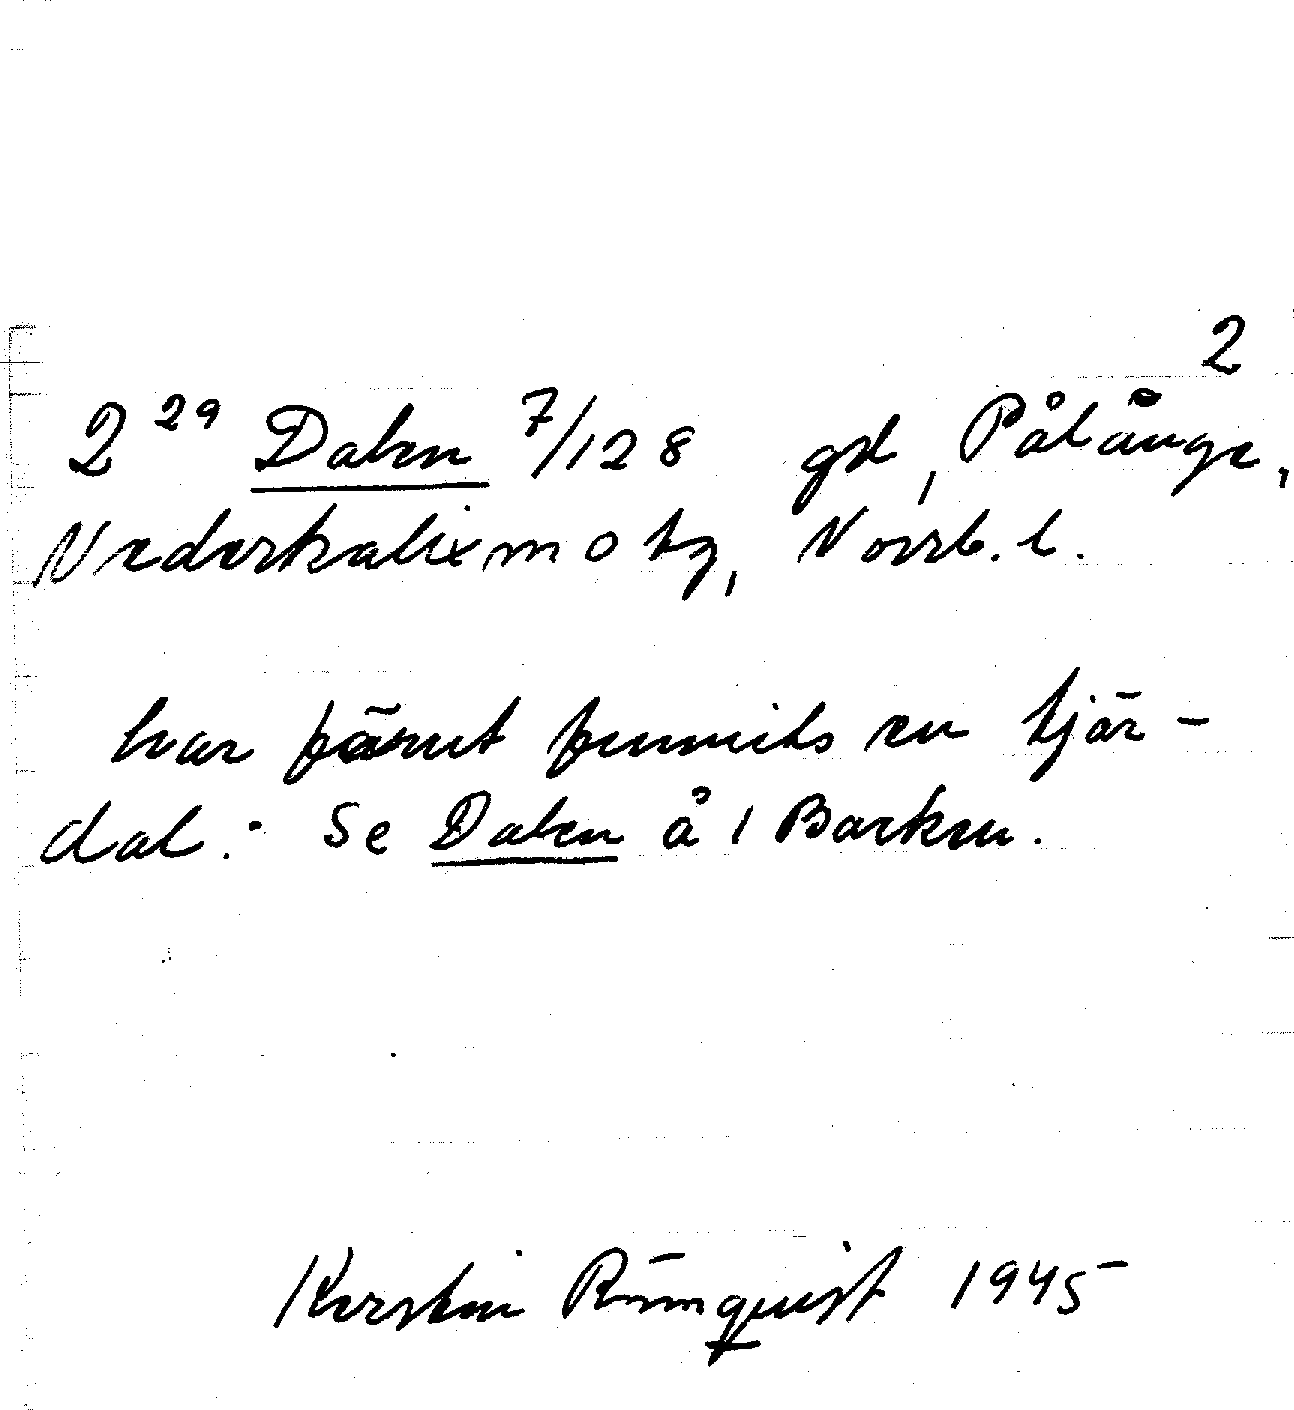 2
2 29 Dalen 7/128 gd, Pålänge,
Nederkalix m o tg, Norrb. l.
har förut funnits en tjär-
dal. Se Dalen å 1 Backen.
Kerstin Rönnquist 1945